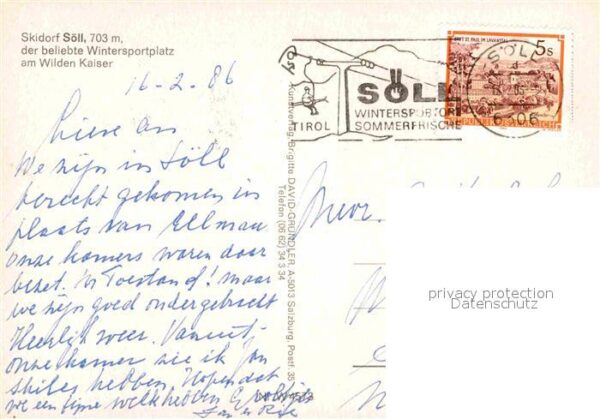 Skidorf Söll, 703 m,
der beliebte Wintersportplatz
am Wilden Kaiser
16-2-86
Lieve
We zijn in Söll
terecht gekomen in
plaats van Ellmau
onze kamers waren daar
bezet. 'n Toestand! maar
we zijn goed ondergebracht
Heerlijk weer. Vanuit
onze kamer zie ik Jan
skiles hebben. Hopen dat
we een fijne week hebben
Mevr.
TIROL
SÖLL
WINTERSPORTORT
SOMMERFRISCHE
STIFT ST. PAUL IM LAVANTTAL
5s
REPUBLIK ÖSTERREICH
SÖLL
6306
Kunstverlag Brigitte DAVID-GRÜNDLER, A-5013 Salzburg, Postf. 35
Telefon (06 62) 34 3 34
privacy protection
Datenschutz